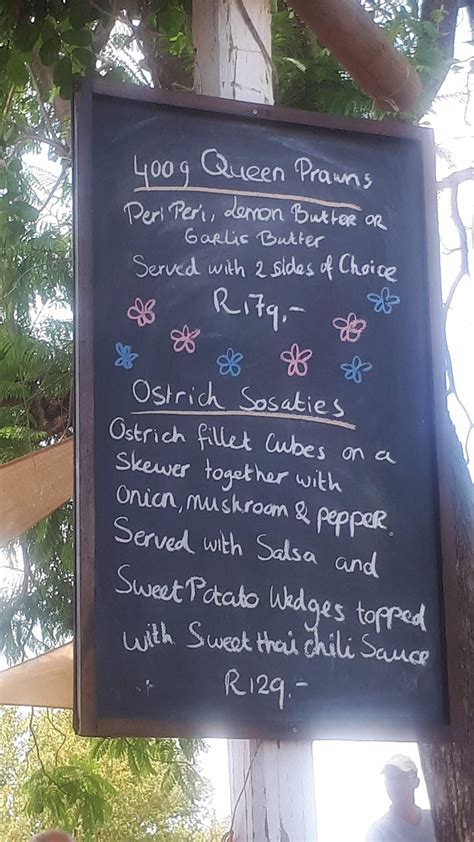 400g Queen Prawns
Peri Peri, Lemon Butter or
Garlic Butter
Served with 2 sides of Choice
R179.-
Ostrich Sosaties
Ostrich fillet Cubes on a
Skewer together with
onion, mushroom & pepper.
Served with Salsa and
Sweet Potato Wedges topped
with Sweet thai chili Sauce
R129.-